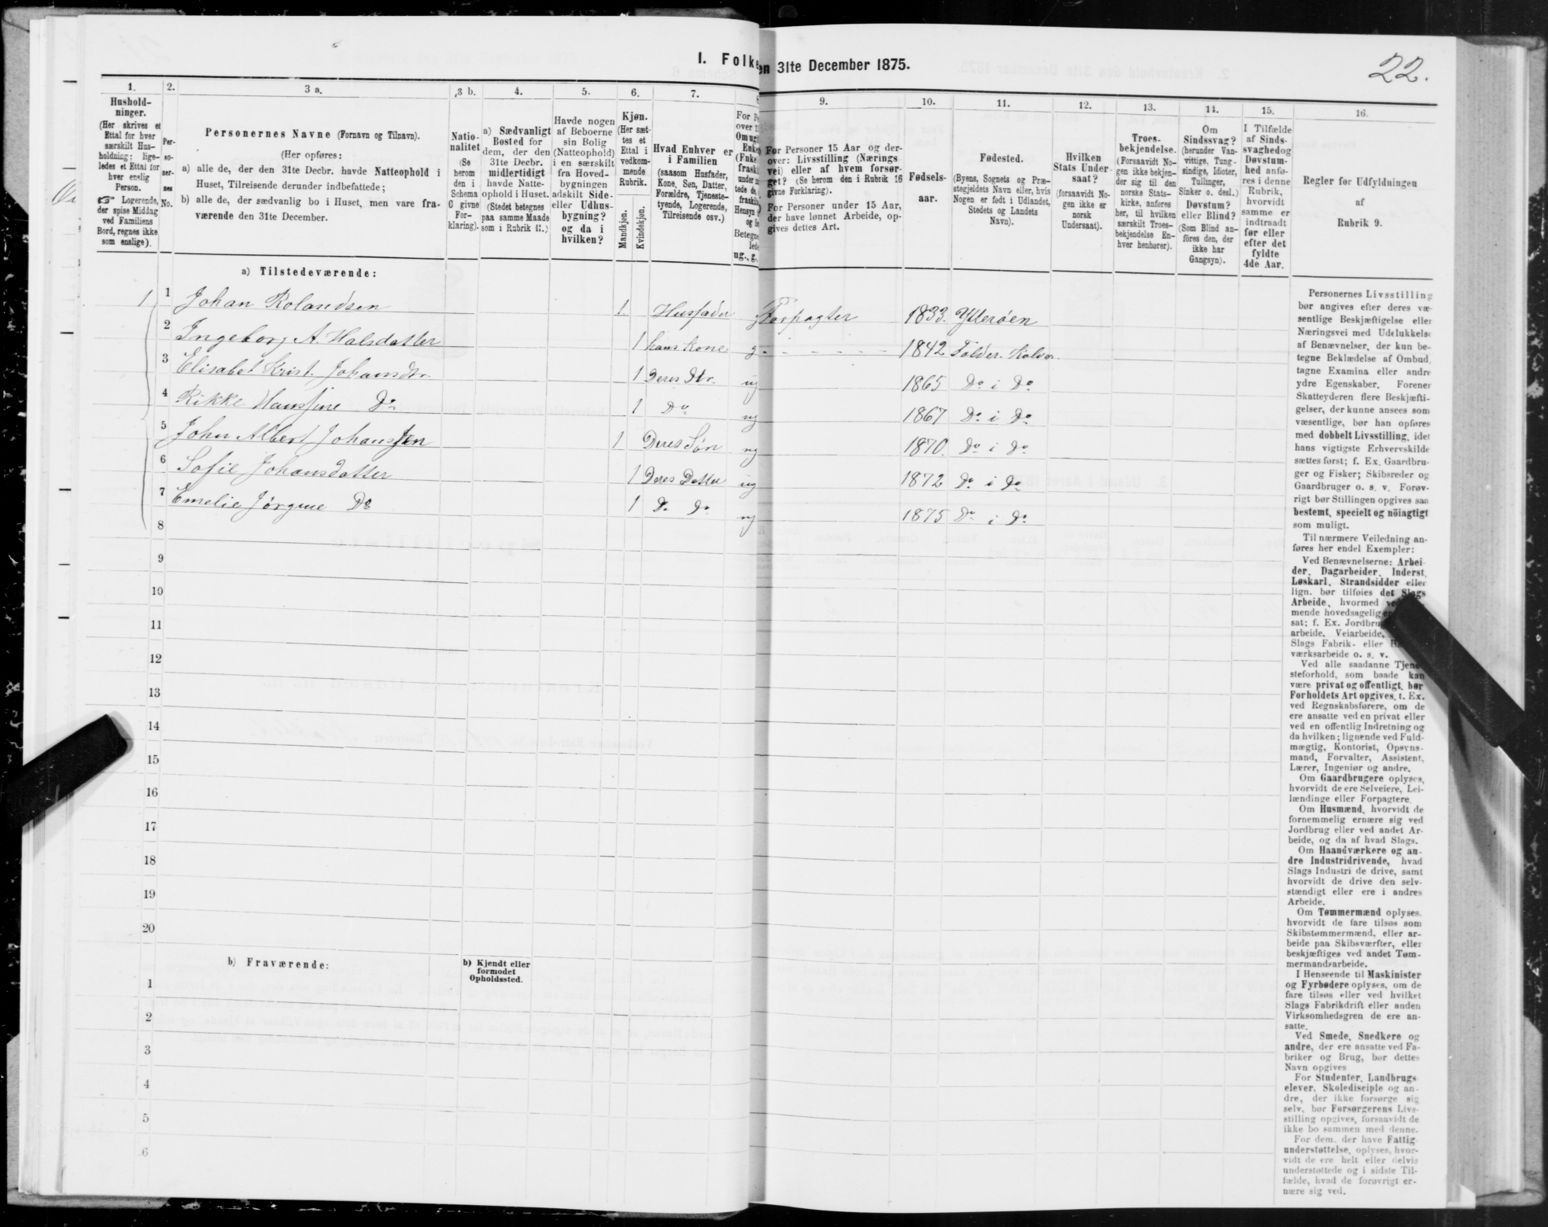 I. Folke
en 31te December 1875.
22.
1.
Hushold-
ninger.
(Her skrives et
Ettal for hver
særskilt Hus-
holdning; lige-
ledes et Ettal for
hver enslig
Person.
☞ Logerende,
der spise Middag
ved Familiens
Bord, regnes ikke
som enslige).
2.
Per-
so-
ner-
nes
No.
3 a.
Personernes Navne (Fornavn og Tilnavn).
(Her opføres:
a) alle de, der den 31te Decbr. havde Natteophold i
Huset, Tilreisende derunder indbefattede;
b) alle de, der sædvanlig bo i Huset, men vare fra-
værende den 31te December.
3 b.
Natio-
nalitet
(Se
herom
den i
Schema
C givne
For-
klaring).
4.
a) Sædvanligt
Bosted for
dem, der den
31te Decbr.
midlertidigt
havde Natte-
ophold i Huset.
(Stedet betegnes
paa samme Maade
som i Rubrik 11.)
5.
Havde nogen
af Beboerne
sin Bolig
(Natteophold)
i en særskilt
fra Hoved-
bygningen
adskilt Side-
eller Udhus-
bygning?
og da i
hvilken?
6.
Kjøn.
(Her sæt-
tes et
Ettal i
vedkom-
mende
Rubrik.
Mandkjøn.
Kvindekjøn.
7.
Hvad Enhver er
i Familien
(saasom Husfader,
Kone, Søn, Datter,
Forældre, Tjeneste-
tyende, Logerende,
Tilreisende osv.)
For P
over
Om ug
Enke
(Fnke
fraski
under
tede de
fraskil
Hensyn
og
Betegn
lede
ug., g.,
9.
For Personer 15 Aar og der-
over: Livsstilling (Nærings
vei) eller af hvem forsør-
get? (Se herom den i Rubrik 16
givne Forklaring).
For Personer under 15 Aar,
der have lønnet Arbeide, op-
gives dettes Art.
10.
Fødsels-
aar.
11.
Fødested.
(Byens, Sognets og Præ-
stegjeldets Navn eller, hvis
Nogen er født i Udlandet,
Stedets og Landets
Navn).
12.
Hvilken
Stats Under-
saat?
(forsaavidt No-
gen ikke er
norsk
Undersaat).
13.
Troes-
bekjendelse.
(Forsaavidt No-
gen ikke bekjen-
der sig til den
norske Stats-
kirke, anføres
her, til hvilken
særskilt Troes-
bekjendelse En-
hver henhører).
14.
Om
Sindssvag?
(herunder Van-
vittige, Tung-
sindige, Idioter,
Tullinger,
Sinker o. desl.)
Døvstum?
eller Blind?
(Som Blind an-
føres den, der
ikke har
Gangsyn).
15.
I Tilfælde
af Sinds-
svaghed og
Døvstum-
hed anfø-
res i denne
Rubrik,
hvorvidt
samme er
indtraadt
før eller
efter det
fyldte
4de Aar.
16.
Regler før Udfyldningen
af
Rubrik 9.
a) Tilstedeværende:
1 1 Johan Rolandsen 1 Husfader g Forpagter 1833 Ytterøen
2 Ingeborg A. Halsdatter 1 hans Kone g 1842 Folder. Kolver.
3 Elisabet Krist. Johansdtr. 1 Deres Dtr. ug 1865 Do i Do
4 Rikke Hansine Do 1 Do ug 1867 Do i Do
5 John Albert Johansen 1 Deres Søn ug 1870 Do i Do
6 Sofie Johansdatter 1 Deres Datter ug 1872 Do i Do
7 Emelie Jørgine Do 1 D. Do ug 1875 Do i Do
8
9
10
11
12
13
14
15
16
17
18
19
20
b) Fraværende:
b) Kjendt eller
formodet
Opholdssted.
1
2
3
4
5
6
Personernes Livsstilling
bør angives efter deres væ-
sentlige Beskjæftigelse eller
Næringsvei med Udelukkelse
af Benævnelser, der kun be-
tegne Beklædelse af Ombud,
tagne Examina eller andre
ydre Egenskaber. Forener
Skatteyderen flere Beskjæfti-
gelser, der kunne ansees som
væsentlige, bør han opføres
med dobbelt Livsstilling, idet
hans vigtigste Erhvervskilde
sættes først; f. Ex. Gaardbru-
ger og Fisker; Skibsreder og
Gaardbruger o. s. v. Forøv-
rigt bør Stillingen opgives saa
bestemt, specielt og nöiagtigt
som muligt.
Til nærmere Veiledning an-
føres her endel Exempler:
Ved Benævnelserne: Arbei-
der, Dagarbeider, Inderst,
Løskarl, Strandsidder eller
lign. bør tilføies det Slags
Arbeide, hvormed
mende hovedsagelig
sat; f. Ex. Jordbru
arbeide, Veiarbeide,
Slags Fabrik- eller
værksarbeide o. s. v.
Ved alle saadanne Tjene-
steforhold, som baade kan
være privat og offentligt, bør
Forholdets Art opgives, t. Ex.
ved Regnskabsførere, om de
ere ansatte ved en privat eller
ved en offentlig Indretning og
da hvilken; lignende ved Fuld-
mægtig, Kontorist, Opsyns-
mand, Forvalter, Assistent,
Lærer, Ingeniør og andre.
Om Gaardbrugere oplyses,
hvorvidt de ere Selveiere, Lei-
lændinge eller Forpagtere.
Om Husmænd, hvorvidt de
fornemmelig ernære sig ved
Jordbrug eller ved andet Ar-
beide, og da af hvad Slags.
Om Haandværkere og an-
dre Industridrivende, hvad
Slags Industri de drive, samt
hvorvidt de drive den selv-
stændigt eller ere i andres
Arbeide.
Om Tømmermænd oplyses,
hvorvidt de fare tilsøs som
Skibstømmermænd, eller ar-
beide paa Skibsværfter, eller
beskjæftiges ved andet Tøm-
mermandsarbeide.
I Henseende til Maskinister
og Fyrbødere oplyses, om de
fare tilsøs eller ved hvilket
Slags Fabrikdrift eller anden
Virksomhedsgren de ere an-
satte.
Ved Smede, Snedkere og
andre, der ere ansatte ved Fa-
briker og Brug, bør dettes
Navn opgives
For Studenter, Landbrugs
elever, Skoledisciple og an-
dre, der ikke forsørge sig
selv, bør Forsørgerens Livs-
stilling opgives, forsaavidt de
ikke bo sammen med denne.
For dem, der have Fattig-
understøttelse, oplyses, hvor-
vidt de ere helt eller delvis
understøttede og i sidste Til-
fælde, hvad de forøvrigt er-
nære sig ved.